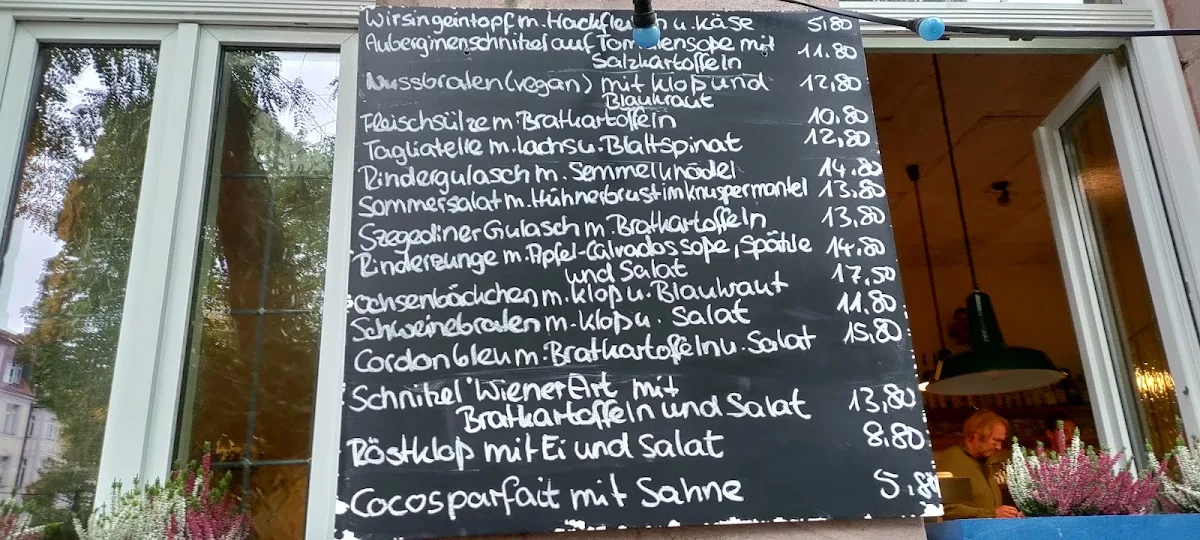 Wirsingeintopf m. Hackfleisch u. Käse 5,80
Auberginenschnitzel auf Tomatensoße mit 11.80
Salzkartoffeln
Nussbraten (vegan) mit Kloß und 12,80
Blaukraut
Fleischsülze m. Bratkartoffeln 10.80
Tagliatelle m. Lachs u. Blattspinat 12,80
Rindergulasch m. Semmelknödel 14.80
Sommersalat m. Hühnerbrust im Knuspermantel 13.80
Szegediner Gulasch m. Bratkartoffeln 13,80
Rinderzunge m. Apfel-Calvadossoße, Spätzle 14.80
und Salat
Ochsenbäckchen m. Kloß u. Blaukraut 17,50
Schweinebraten m. Kloß u. Salat 11.80
Cordon bleu m. Bratkartoffeln u. Salat 15,80
Schnitzel "Wiener Art" mit
Bratkartoffeln und Salat 13,80
Röstkloß mit Ei und Salat 8.80
Cocosparfait mit Sahne 5.80